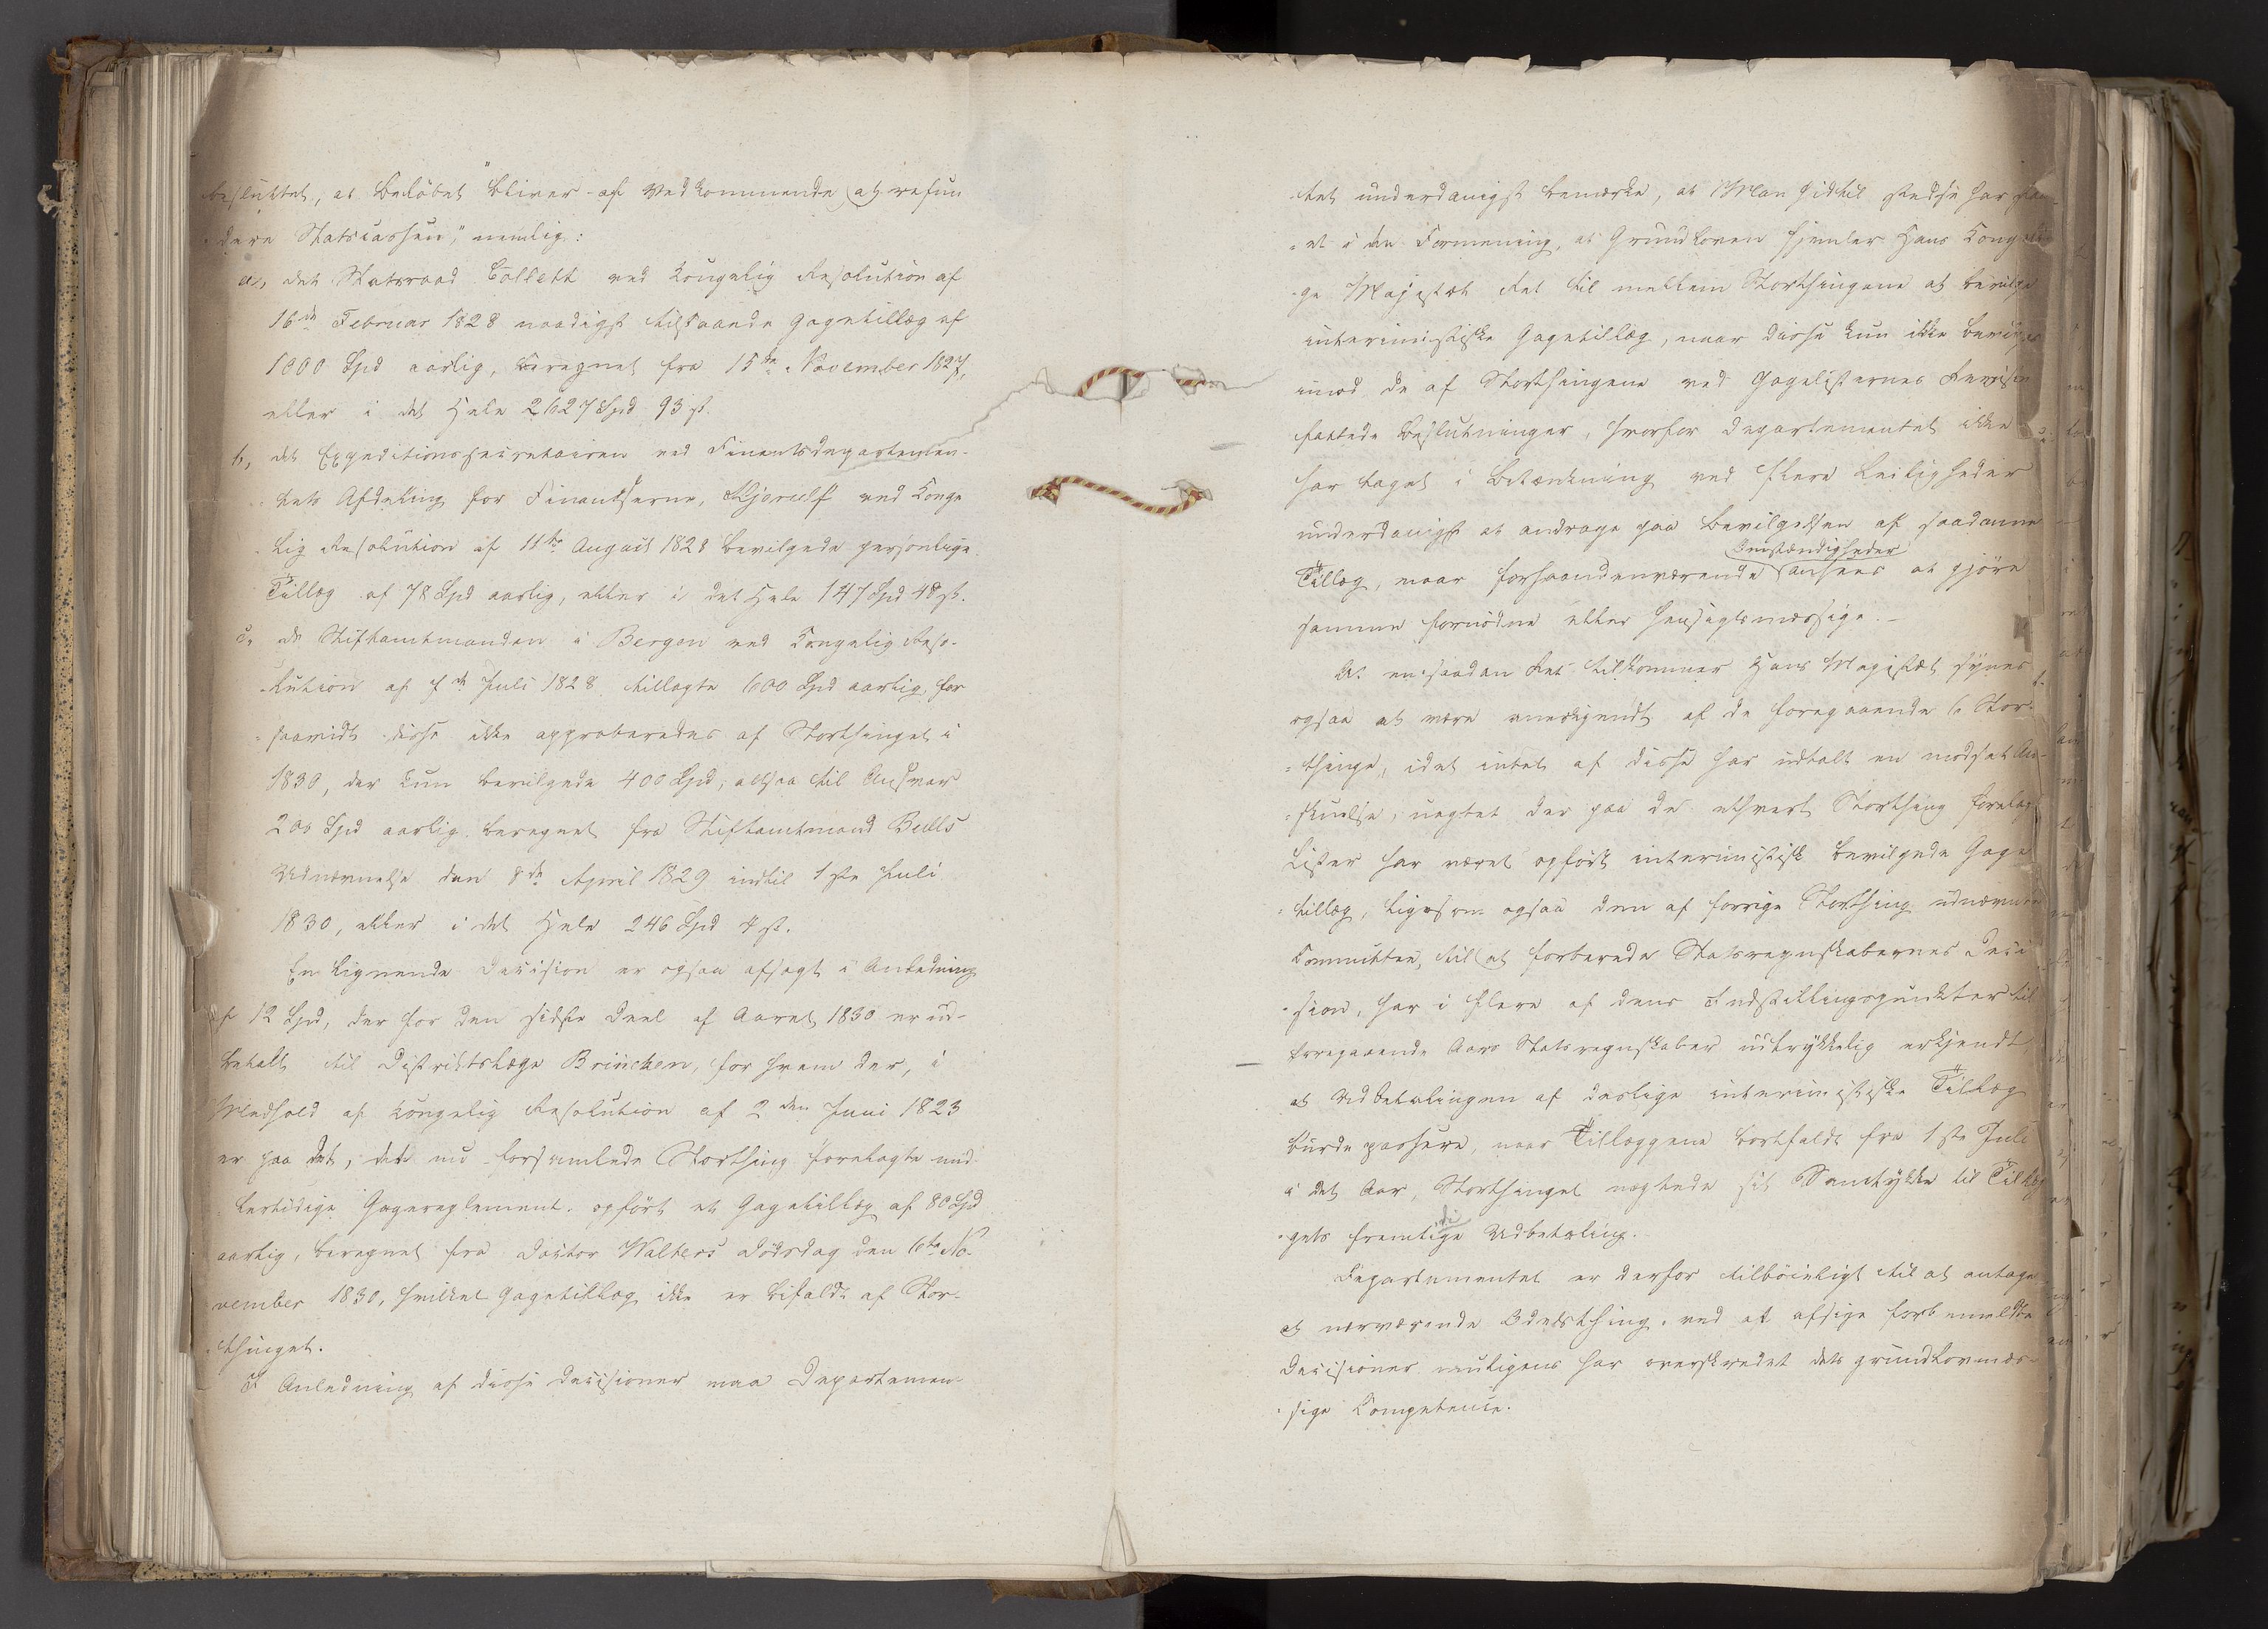 besluttet, at Beløbet "bliver af Vedkommende at refun-
dere Statscassen," nemlig:
a, det Statsraad Collett ved kongelig Resolution af
16de Februar 1828 naadigst tilstaaede Gagetillæg af
1000 Spd aarlig, beregnet fra 15de November 1827,
eller i det Hele 2627 Spd 93 ß.
b, det Expeditionssecretairen ved Finantsdepartemen-
tets Afdeling for Finantserne, Kjerulf ved Konge-
lig Resolution af 11te August 1828 bevilgede personlige
Tillæg af 78 Spd aarlig, eller i det Hele 147 Spd 48 ß.
c, de Stiftamtmanden i Bergen ved Kongelig Reso-
lution af 7de Juli 1828 tillagte 600 Spd aarlig, for
saavidt disse ikke approberedes af Storthinget i
1830, der kun bevilgede 400 Spd, altsaa til Ansvar
200 Spd aarlig beregnet fra Stiftamtmand Bulls
Udnævnelse den 8de April 1829 indtil 1ste Juli
1830, eller i det Hele 246 Spd 4 ß.
En lignende Decision er ogsaa afsagt i Anledning
af 12 Spd, der for den sidste Deel af Aaret 1830 er ud-
betalt til Districtslæge Brünchen, for hvem der, i
Medhold af kongelig Resolution af 2den Juni 1823
er paa det, det nu forsamlede Storthing forelagte mid-
lertidige Gagereglement opført et Gagetillæg af 80 Spd
aarlig, beregnet fra Doctor Walters Dødsdag den 6te No-
vember 1830, hvilket Gagetillæg ikke er bifaldt af Stor-
thinget.
I Anledning af disse Decisioner maa Departemen-
tet underdanigst bemærke, at Man hidtil stedse har staa-
et i den Formening, at Grundloven hjemler Hans Kongeli-
ge Majestæt Ret til mellem Storthingene at bevilge
interimistiske Gagetillæg, naar disse kun ikke bevilges
imod de af Storthingene ved Gagelisternes Revision
fattede Beslutninger, hvorfor Departementet ikke
har taget i Betænkning ved flere Leiligheder
underdanigst at andrage paa Bevilgelsen af saadanne
Tillæg, naar forhaandenværende Omstændigheder ansees at gjøre
samme fornødne eller hensigtsmæssige. –
At en saadan Ret tilkommer Hans Majestæt synes
ogsaa at være anerkjendt af de foregaaende 6 Stor-
thinge, idet intet af disse har udtalt en modsat An-
skuelse, uagtet der paa de ethvert Storthing forelagte
Lister har været opført interimistisk bevilgede Gage-
tillæg, ligesom ogsaa den af forrige Storthing udnævnte
Committee, til at forberede Statsregnskabernes Deci-
sion, har i flere af dens Indstillingspunkter til
foregaaende Aars Statsregnskaber udtrykkelig erkjendt,
at Udbetalingen af deslige interimistiske Tillæg
burde passere, naar Tillæggene bortfaldt fra 1ste Juli
i det Aar, Storthinget nægtede sit Samtykke til Tillæg-
gets fremtidige Udbetaling.
Departementet er derfor tilbøieligt til at antage
at nærværende Odelsthing ved at afsige forbemeldte
Decisioner muligens har overskredet dets grundlovmæs-
sige Competence.